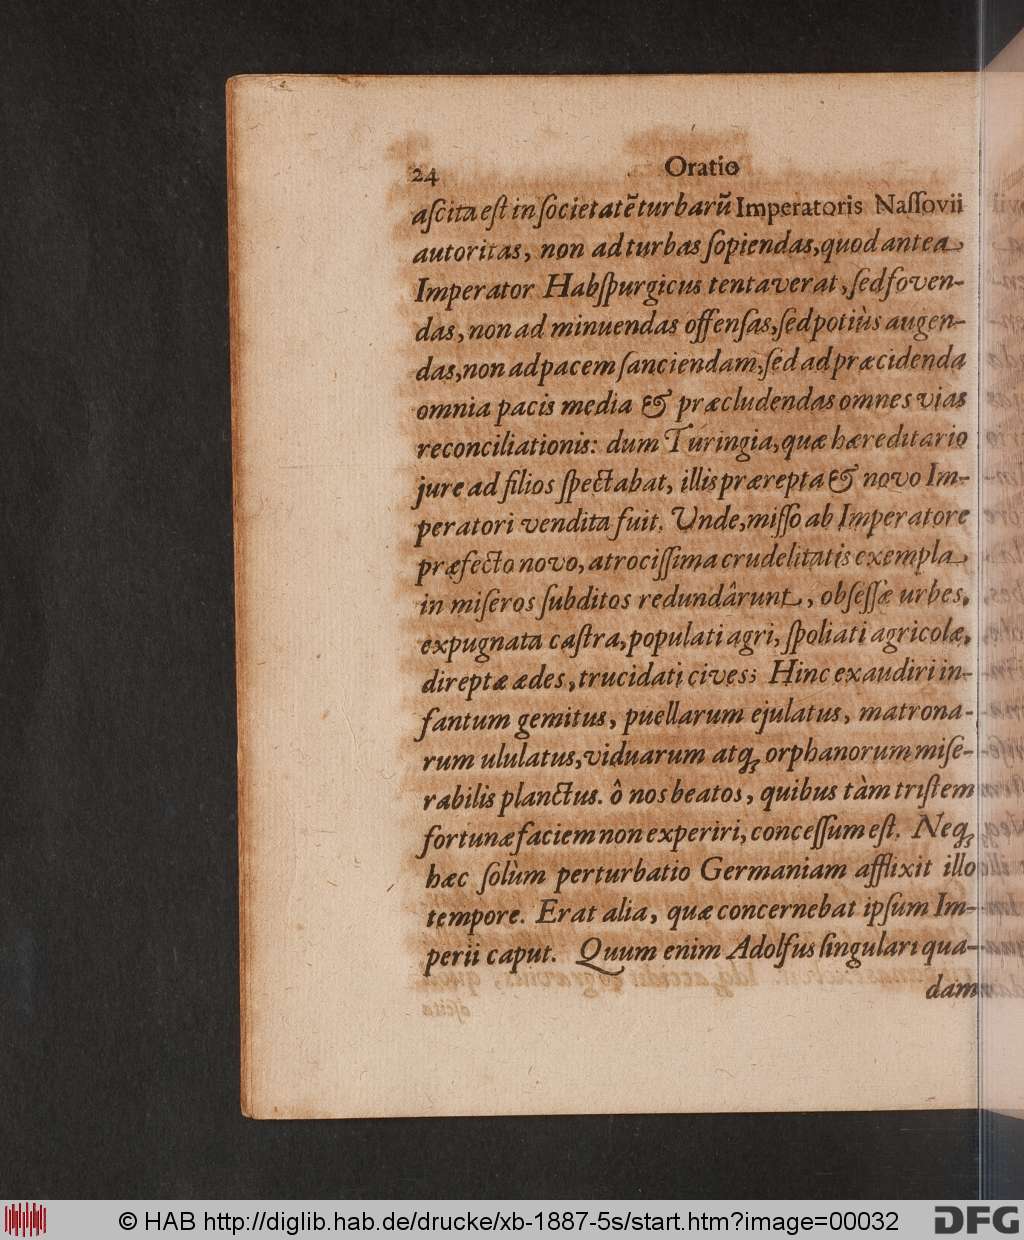 24 Oratio
aſcita eſt in ſocietatẽ turbarũ Imperatoris Naſſovii
autoritas, non ad turbas ſopiendas, quod antea
Imperator Habſpurgicus tentaverat, ſed foven-
das, non ad minuendas offenſas, ſed potiùs augen-
das, non ad pacem ſanciendam, ſed ad præcidenda
omnia pacis media & præcludendas omnes vias
reconciliationis: dum Turingia, quæ hæreditario
jure ad filios ſpectabat, illis prærepta & novo Im-
peratori vendita fuit. Unde, miſſo ab Imperatore
præfecto novo, atrociſſima crudelitatis exempla
in miſeros ſubditos redundârunt, obſeſſæ urbes,
expugnata caſtra, populati agri, ſpoliati agricolæ,
direptæ ædes, trucidati cives; Hinc exaudiri in-
fantum gemitus, puellarum ejulatus, matrona-
rum ululatus, viduarum atq; orphanorum miſe-
rabilis planctus. ô nos beatos, quibus tàm triſtem
fortunæ faciem non experiri, conceſſum eſt. Neq;
hæc ſolùm perturbatio Germaniam afflixit illo
tempore. Erat alia, quæ concernebat ipſum Im-
perii caput. Quum enim Adolfus ſingulari qua-
dam
© HAB http://diglib.hab.de/drucke/xb-1887-5s/start.htm?image=00032 DFG